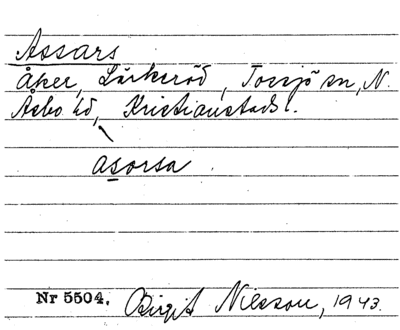 Assars
Åker, Lärkeröd, Tossjö sn, N.
Åsbo hd, Kristianstads l.
asorsa
Nr 5504. Birgit Nilsson, 1943.